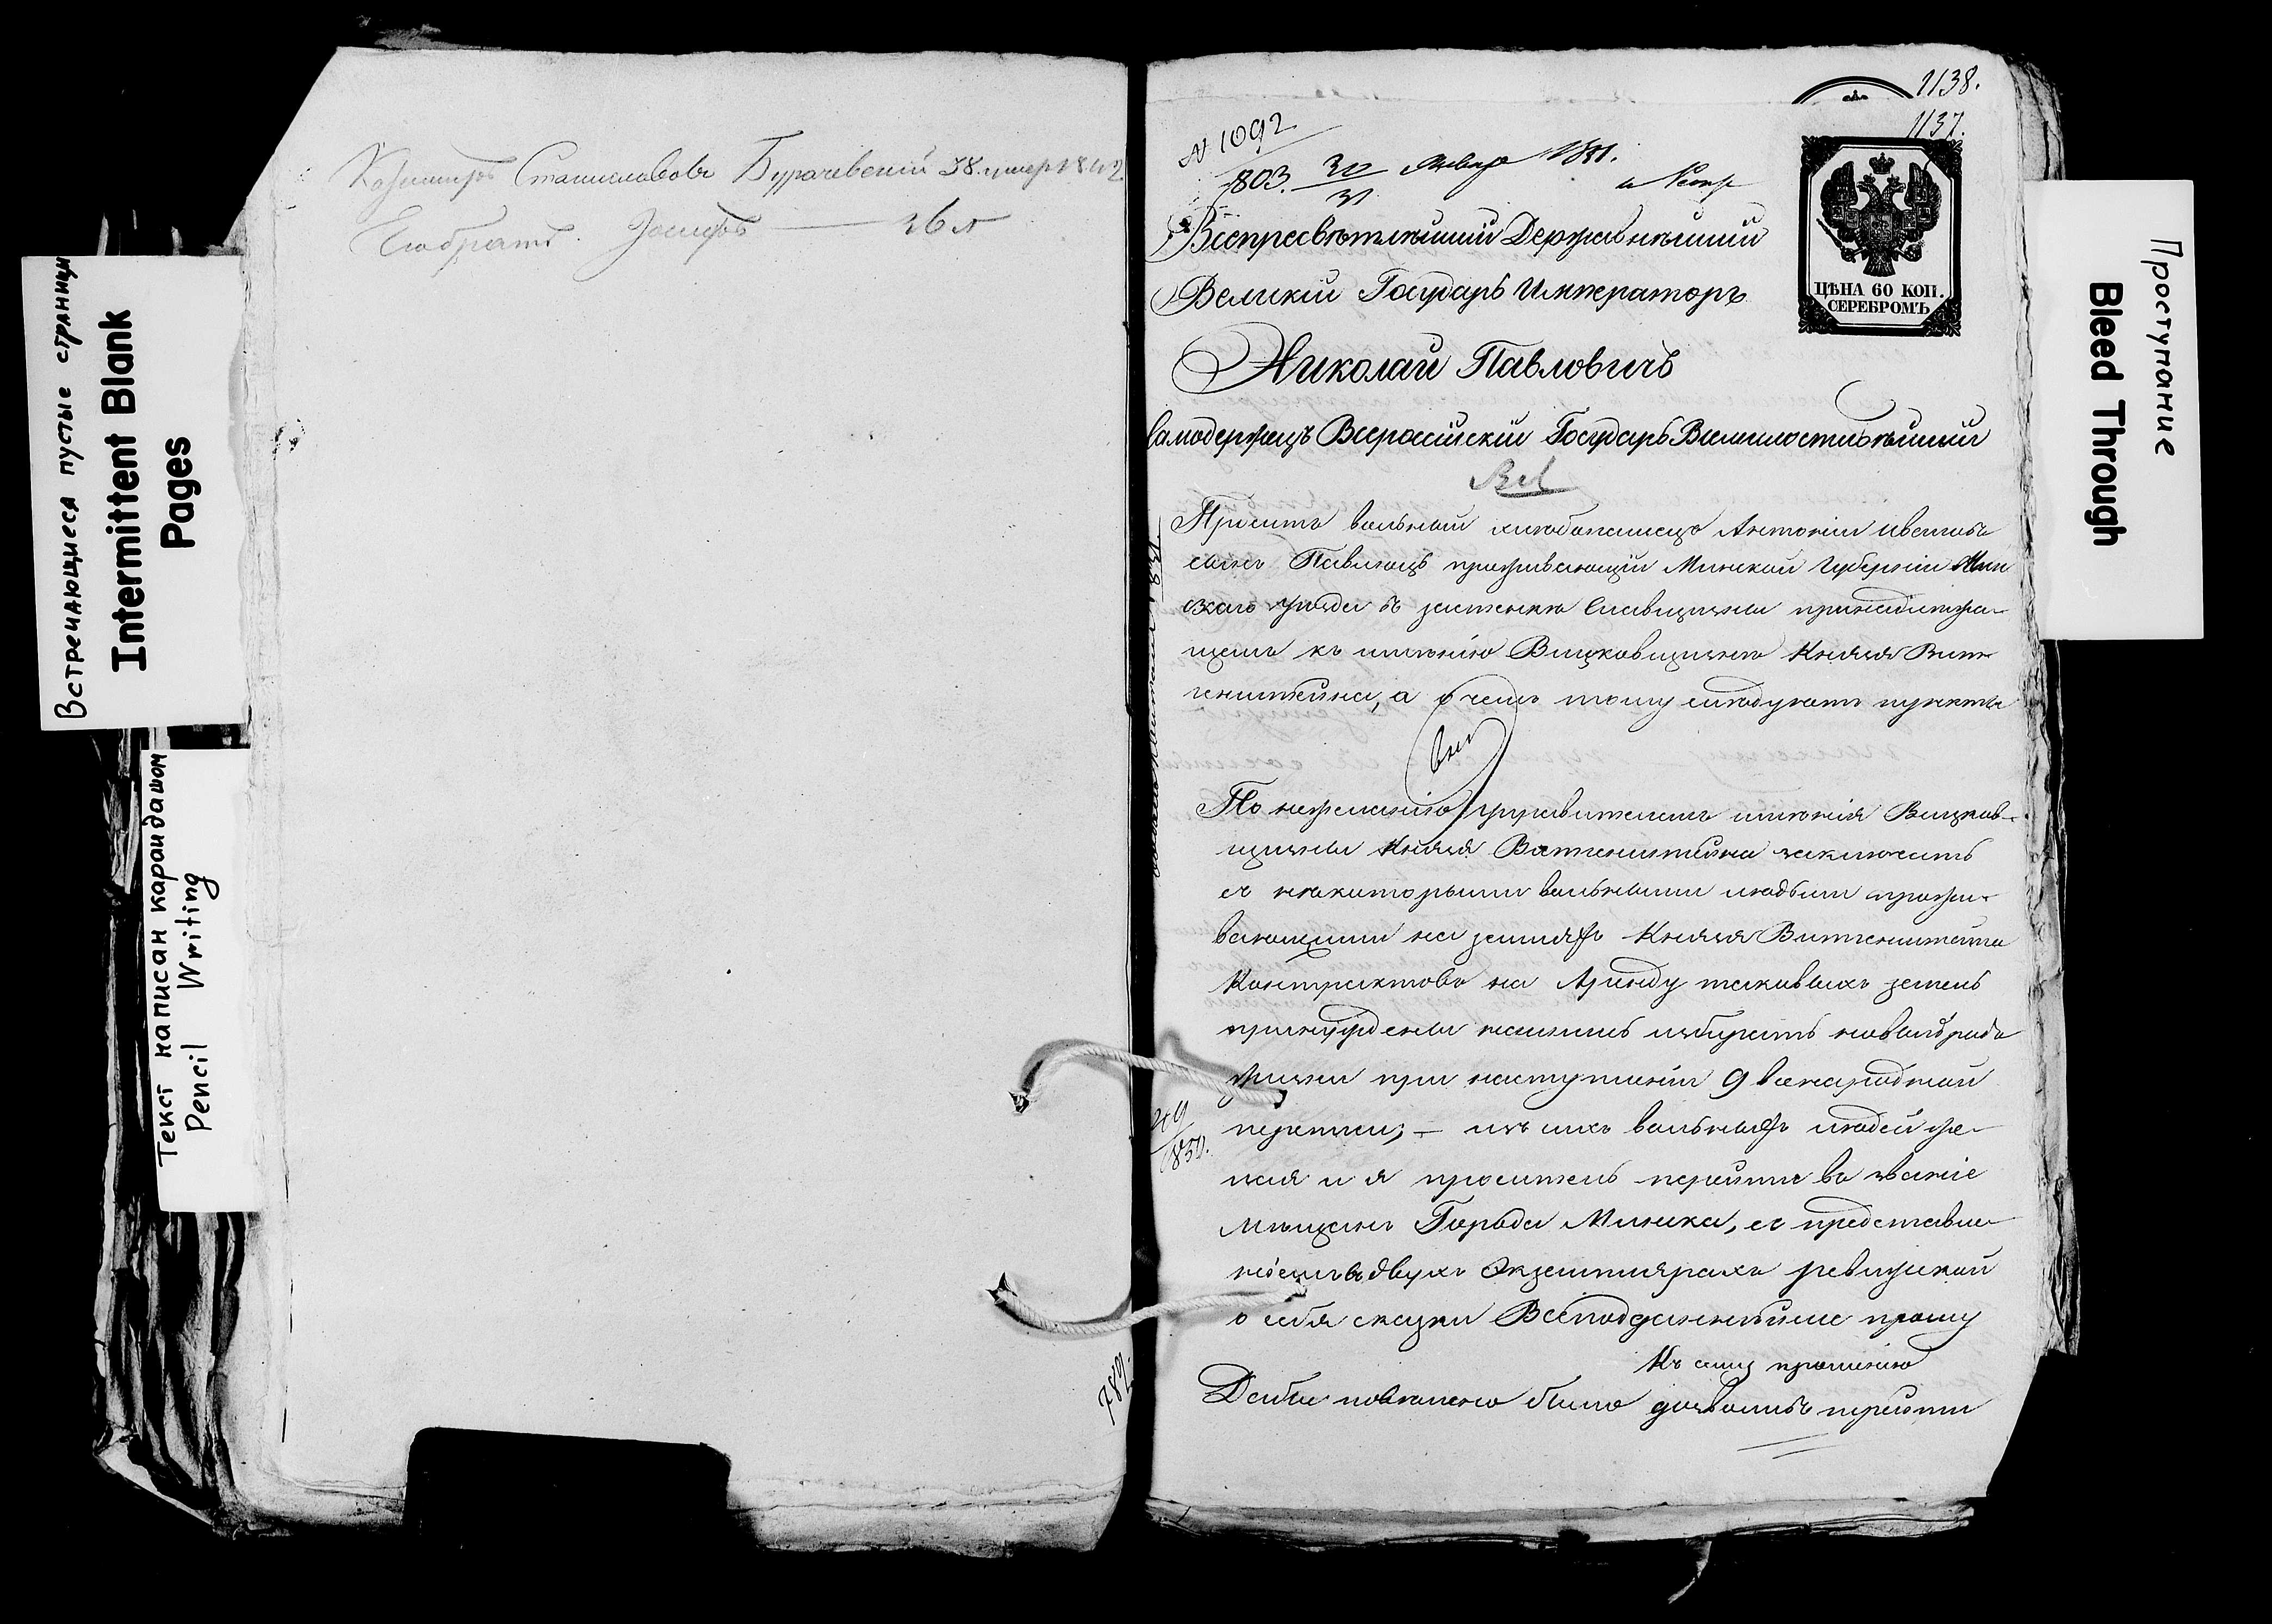 Встречающиеся пустые страницы
Intermittent Blank
Pages
Текст написан карандашом
Pencil Writing
Казимиръ Станиславовъ Бурачевский 38. умеръ 1842
Его братъ Іосифъ — 36 л
782.
1138.
1137.
N 1092
803. 30 Января 1851.
31
ЦѢНА 60 КОП.
СЕРЕБРОМЪ
Всепресвѣтлѣйшій Державнѣйшій
Великій Государь Императоръ
Николай Павловичъ
Самодержецъ Всероссійскій Государь Всемилостивѣйшій
Проситъ вольный хлѣбопашецъ Антоній
сынъ проживающій Минской Губерніи Мин
скаго уѣзда въ застенкѣ принадлежа-
щемъ къ имѣнію Князя Вит-
генштейна, а о чемъ тому слѣдуютъ пункты
По нежеланію управителемъ имѣнія
Князя Витгенштейна заключить
съ нѣкоторыми вольными людьми прожи-
вающими на земляхъ Князя Витгенштейна
Контрактовъ на Аренду таковыхъ земель
принуждены нашлись избирать новый родъ
жизни при наступленіи 9 всенародной
переписи; — изъ сихъ вольныхъ людей же-
лая и я проситель перейти въ званіе
мѣщанъ Города Минска, съ представле-
ніемъ въ двухъ Экземплярахъ ревизской
о себѣ сказки Всеподданнѣйше прошу
Къ сему прошенію
Дабы повелено было дозволить перейти
850.
Проступание
Bleed Through